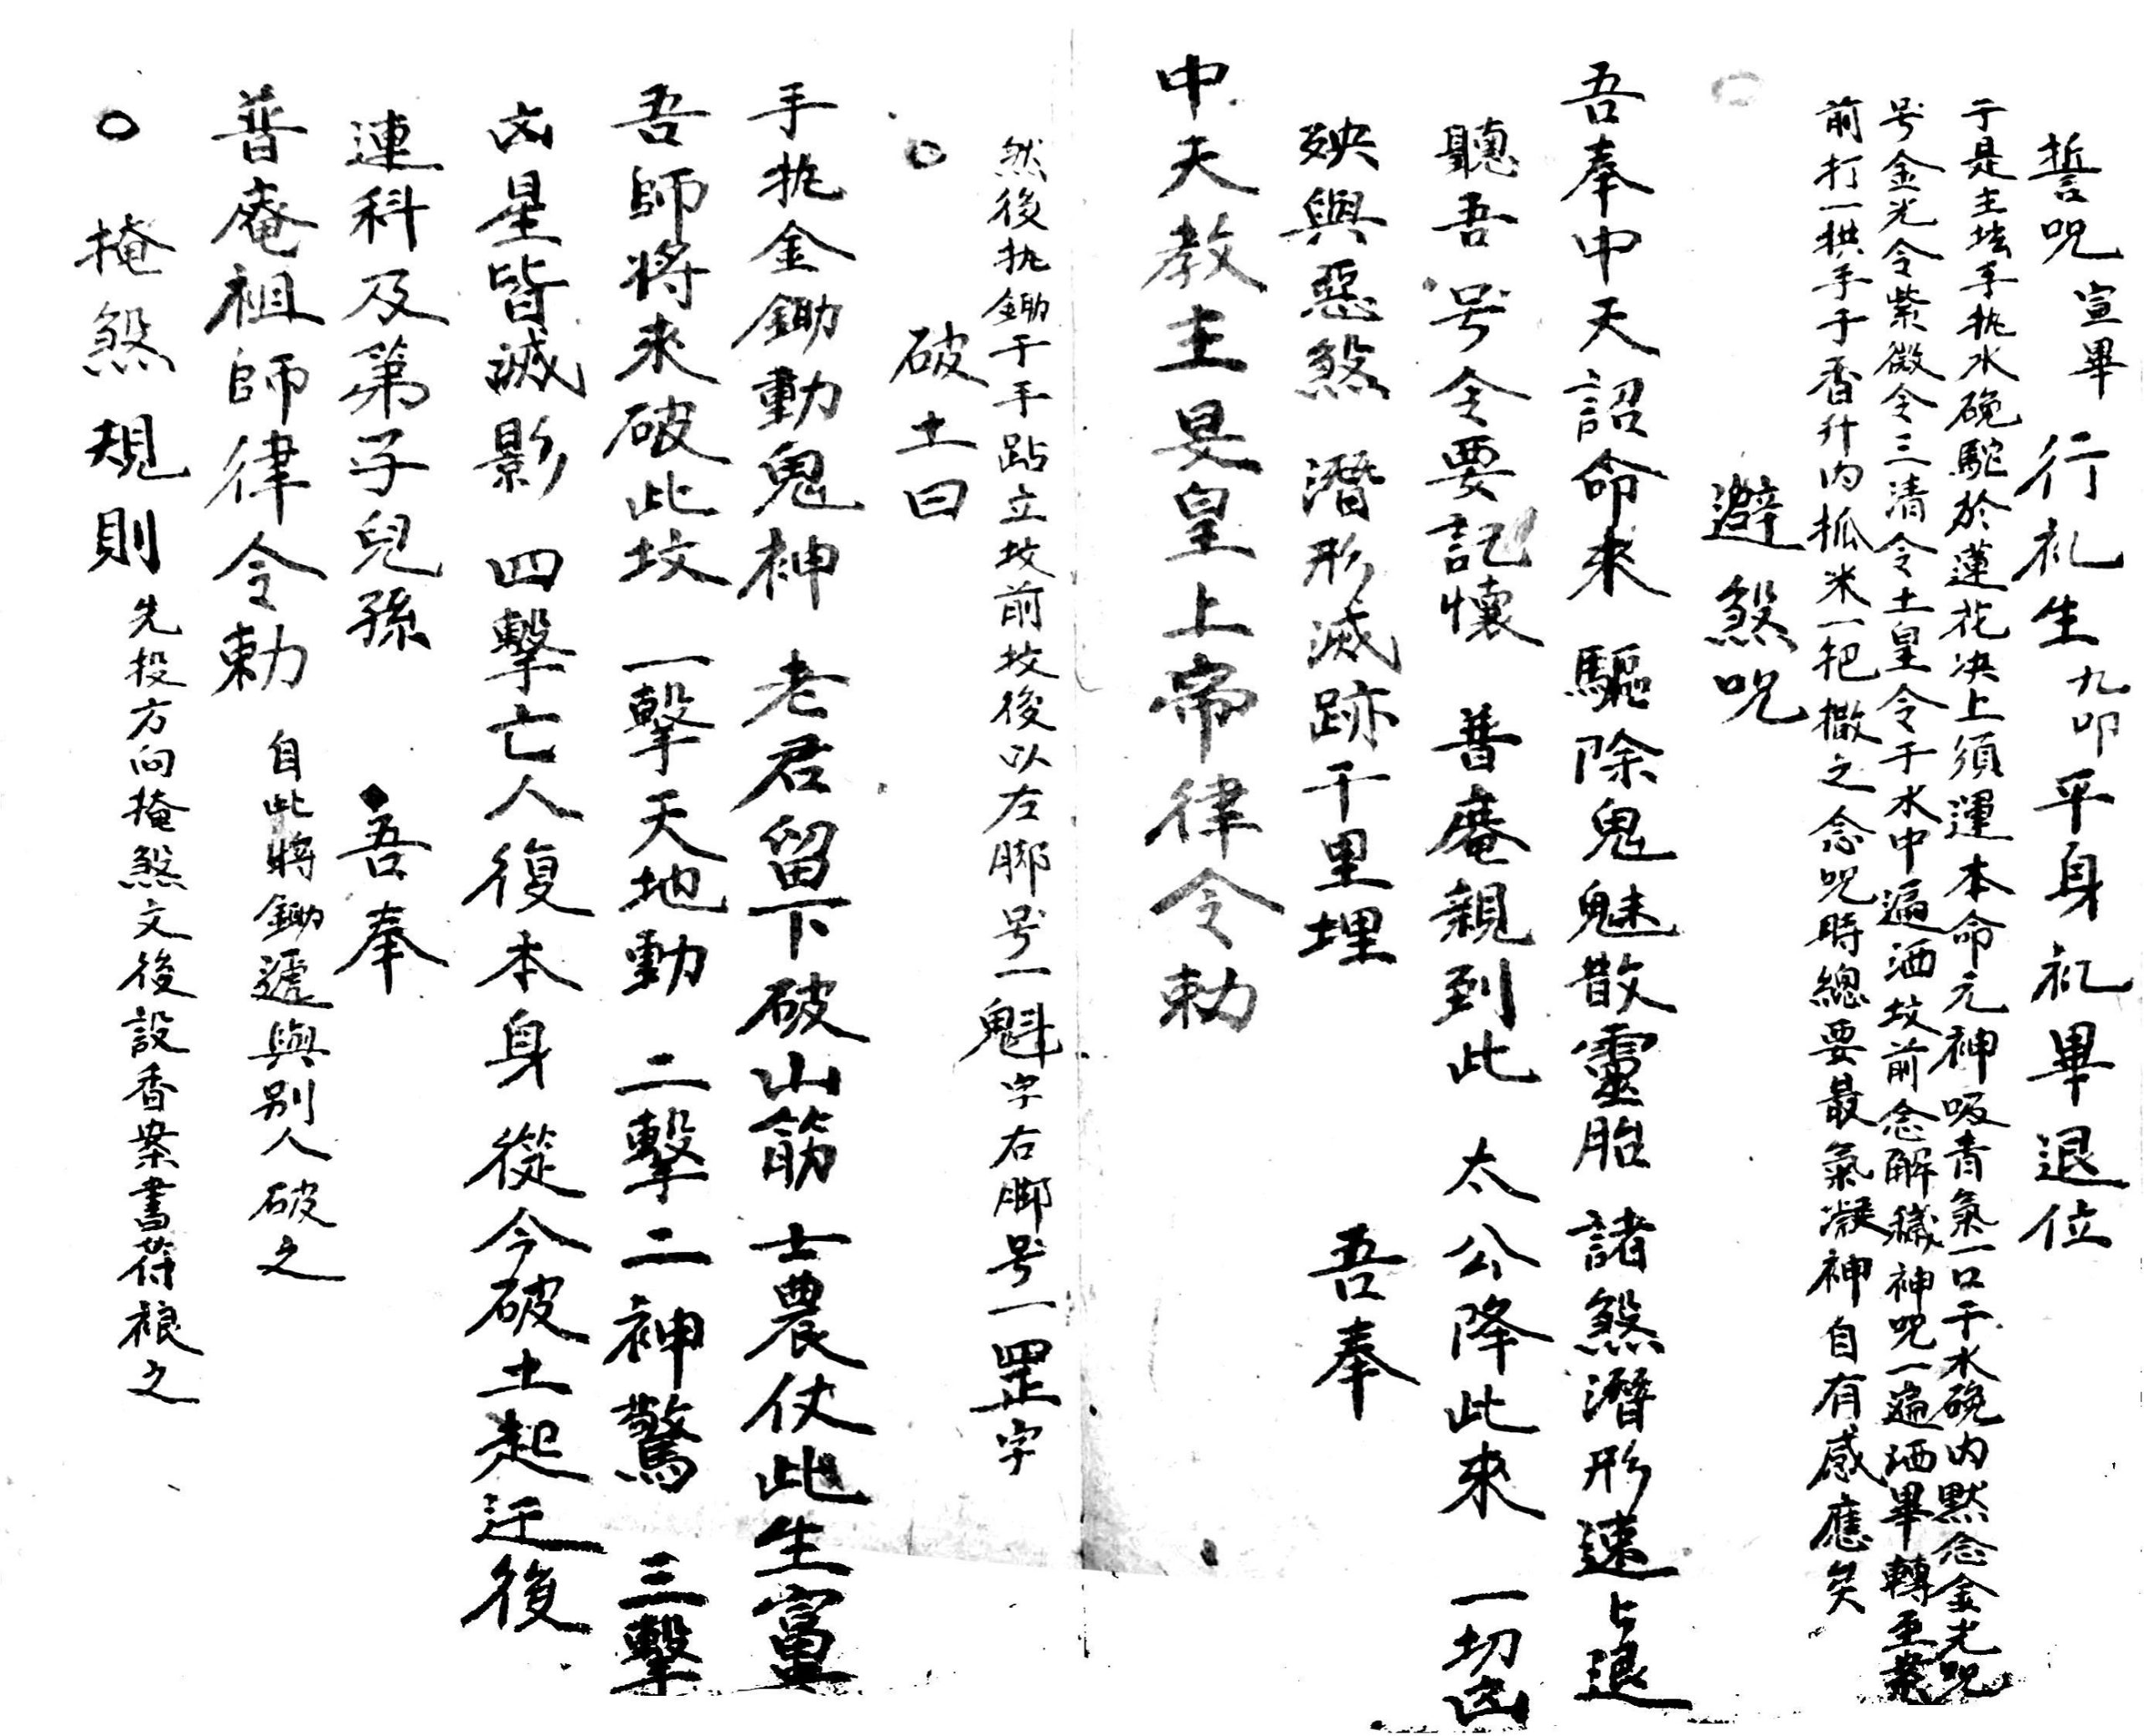 誓咒宣畢 行礼生九叩平身礼畢退位
于是主坛手执水碗駝於蓮花决上須運本命元神吸青氣一口于水碗内默念金光咒
号金光令紫微令三清令土皇令于水中遍洒坟前念解穢神咒一遍洒畢轉至案
前打一拱手于香升内抓米一把撒之念咒時總要最氣凝神自有感應矣
避煞咒
吾奉中天詔命來 驅除鬼魅散靈胎 諸煞潛形速占退
聽吾号令要記懷 普庵親到此 太公降此來 一切凶
殃與惡煞 潛形滅跡千里埋 吾奉
中天教主昊皇上帝律令勅
然後执鋤于手跕立坟前坟後以左脚号一魁字右脚号一罡字
○ 破土曰
手执金鋤動鬼神 老君留下破山筋 士農仗此生富貴
吾師將來破此坟 一擊天地動 二擊二神驚 三擊
凶星皆滅影 四擊亡人復本身 從今破土起迁後
連科及第子兒孫 吾奉
普庵祖師律令勅 自此將鋤遞與别人破之
○ 掩煞規則 先投方向掩煞文後設香案書符 之